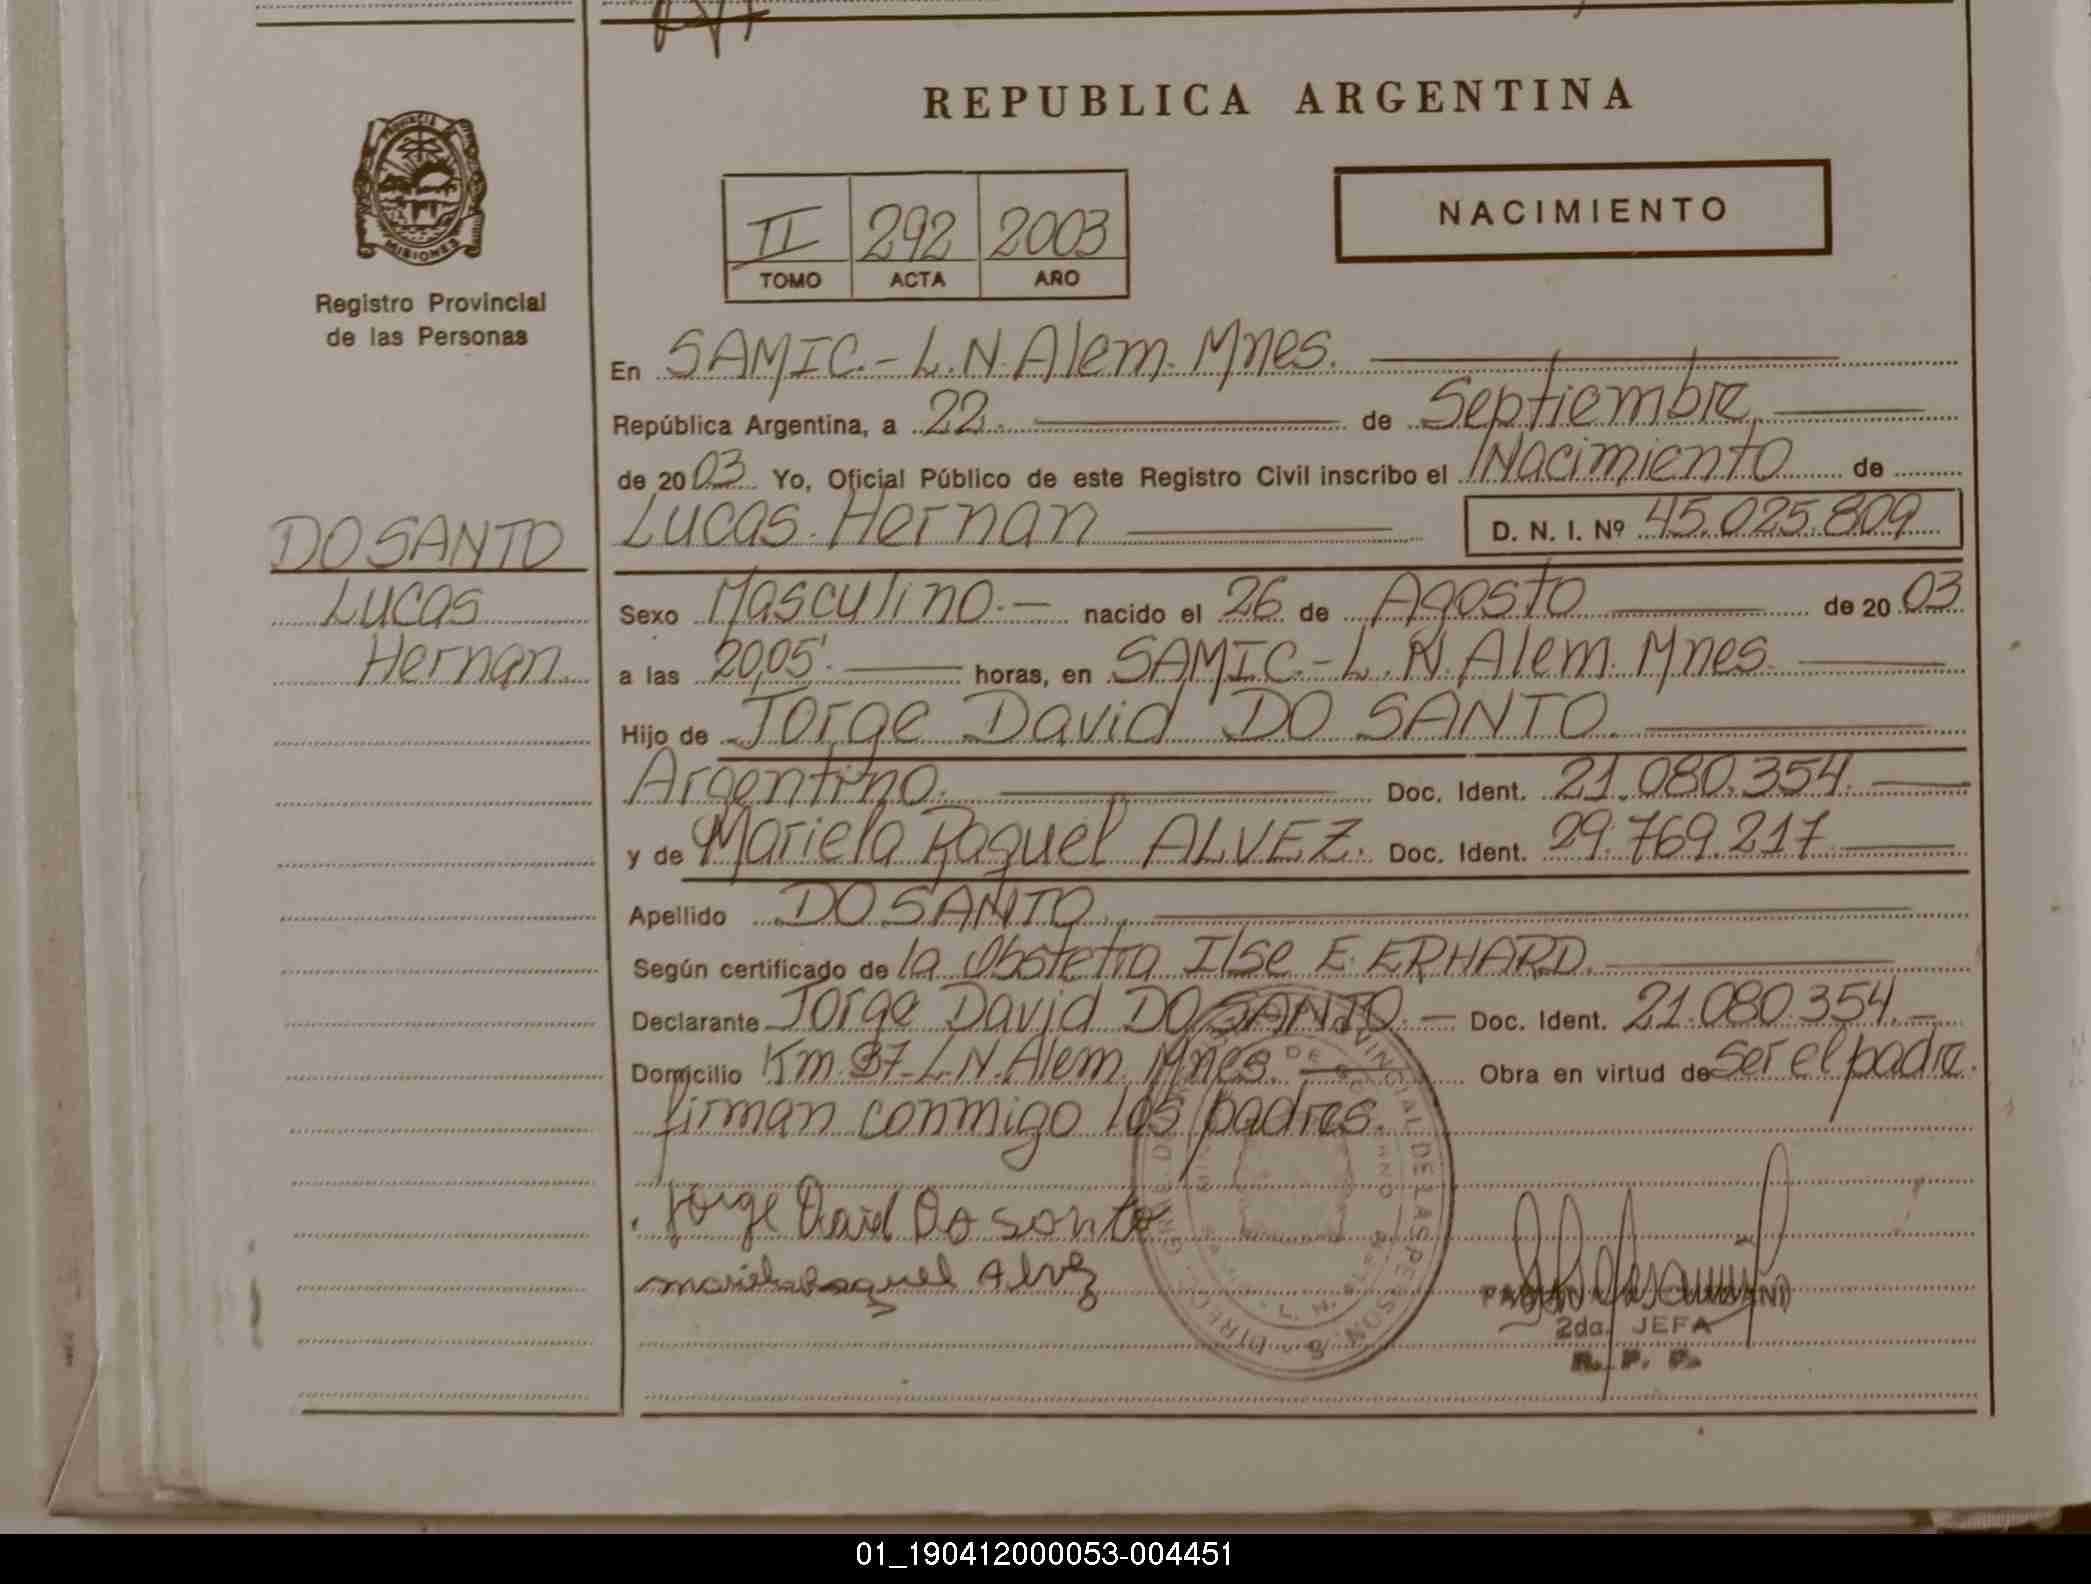 REPUBLICA ARGENTINA
PROVINCIA DE
MISIONES
Registro Provincial
de las Personas
II 292 2003
TOMO ACTA AÑO
NACIMIENTO
En SAMIC.- L.N.Alem. Mnes.
República Argentina, a 22. de Septiembre
de 2003 Yo, Oficial Público de este Registro Civil inscribo el Nacimiento de
Lucas Hernan D. N. I. Nº 45.025.809
DO SANTO
Lucas
Hernan.
Sexo Masculino.- nacido el 26 de Agosto de 2003
a las 20,05' horas, en SAMIC.- L.N.Alem. Mnes.
Hijo de Jorge David DO SANTO.
Argentino. Doc. Ident. 21.080.354.
y de Mariela Raquel ALVEZ. Doc. Ident. 29.769.217
Apellido DO SANTO.
Según certificado de la Obstetra Ilse E. ERHARD.
Declarante Jorge David DO SANTO.- Doc. Ident. 21.080.354.-
Domicilio Km.37-L.N.Alem. Mnes. Obra en virtud de ser el padre.
firman conmigo los padres.
Jorge David Do santo
mariela Raquel Alvez
2da. JEFA
R. P. P.
01_190412000053-004451